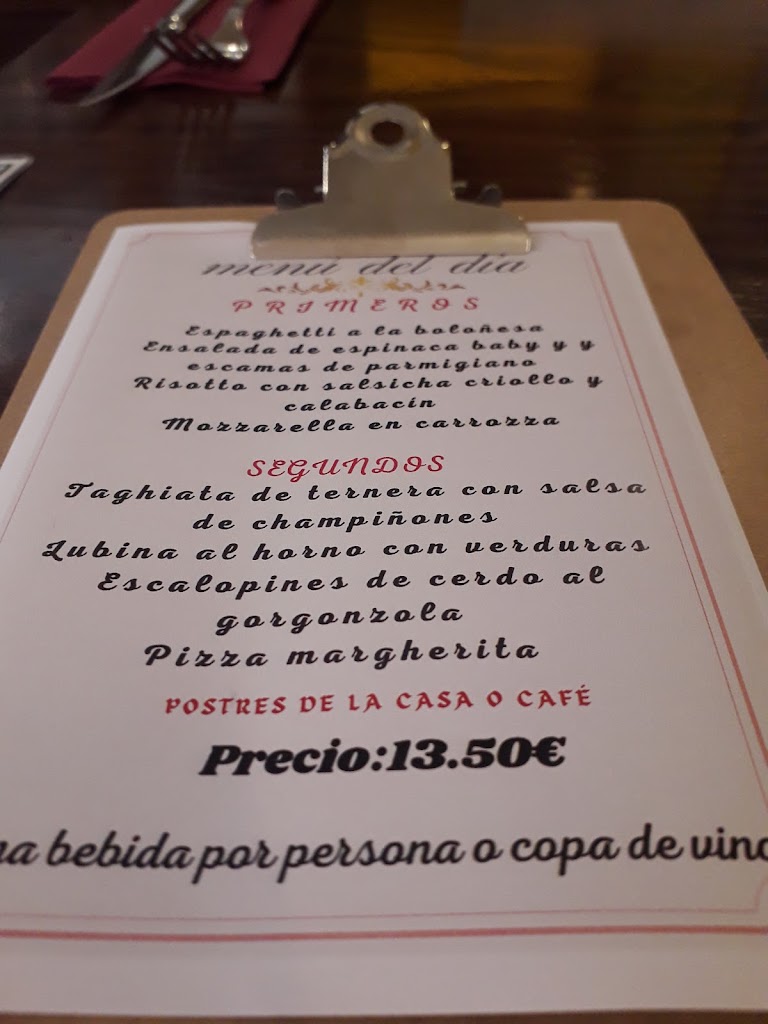 menú del día
PRIMEROS
Espaghetti a la boloñesa
Ensalada de espinaca baby y y
escamas de parmigiano
Risotto con salsicha criollo y
calabacín
Mozzarella en carrozza
SEGUNDOS
Taghiata de ternera con salsa
de champiñones
Lubina al horno con verduras
Escalopines de cerdo al
gorgonzola
Pizza margherita
POSTRES DE LA CASA O CAFÉ
Precio:13.50€
bebida por persona o copa de vino